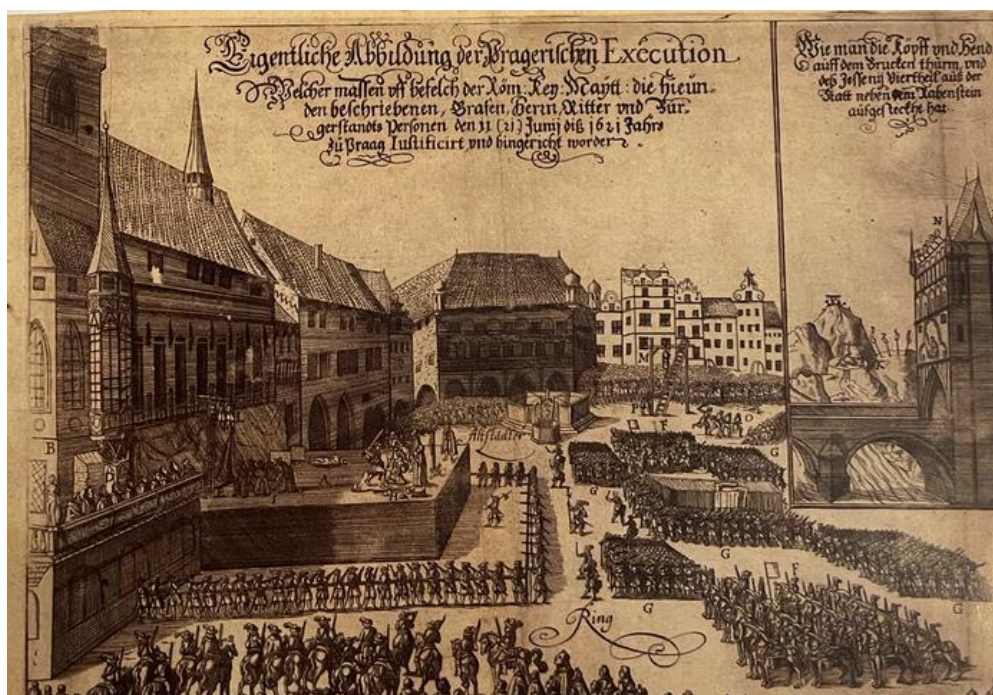 Eigentliche Abbildung der Pragerischen Execution
Welcher massen uff befelch der Röm: Key: Maytt: die hieun
den beschriebenen, Grafen, Herrn, Ritter vnd Bür-
gerstandts Personen den 11 (21) Junij diß 1621 Jahrs
zu Praag Iustificirt vnd hingericht worden.
Wie man die Köpff vnd Hend
auff dem Brucken thurm, vnd
deß Jessenij Viertheil auß der
Statt neben dem Rabenstein
aufgesteckht hat.
N
M
B
F
O
Altstädter
G
G
G
F
G
G
Ring